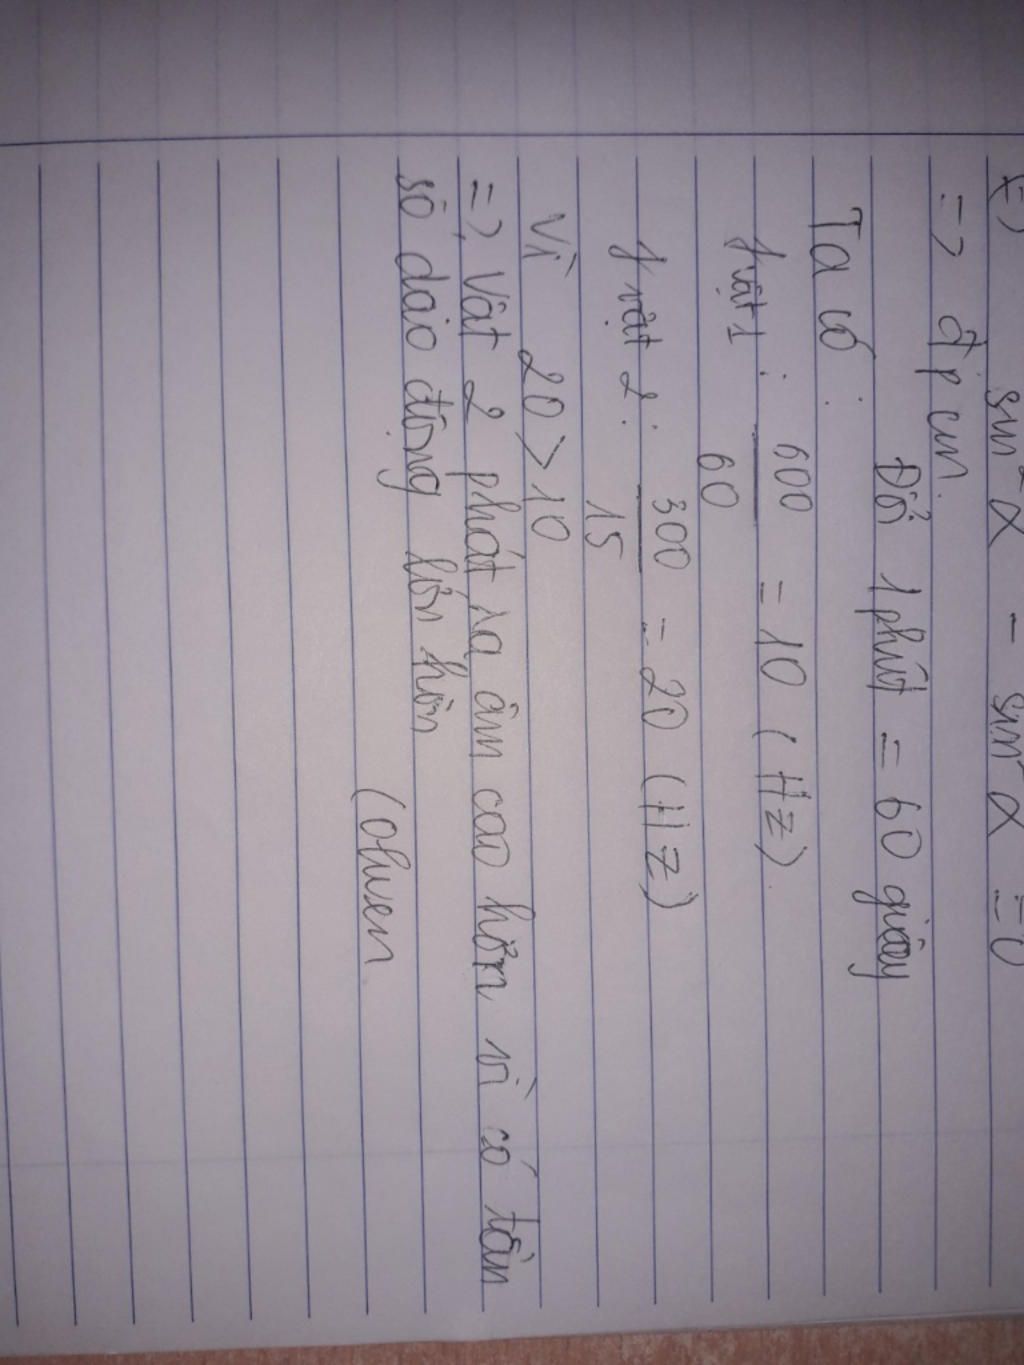 sin²α - sin²α = 0
=> đpcm.
Đổi 1 phút = 60 giây
Ta có :
f vật 1 : 600/60 = 10 (Hz).
f vật 2 : 300/15 = 20 (Hz)
Vì 20 > 10
=> Vật 2 phát ra âm cao hơn vì có tần
số dao động lớn hơn